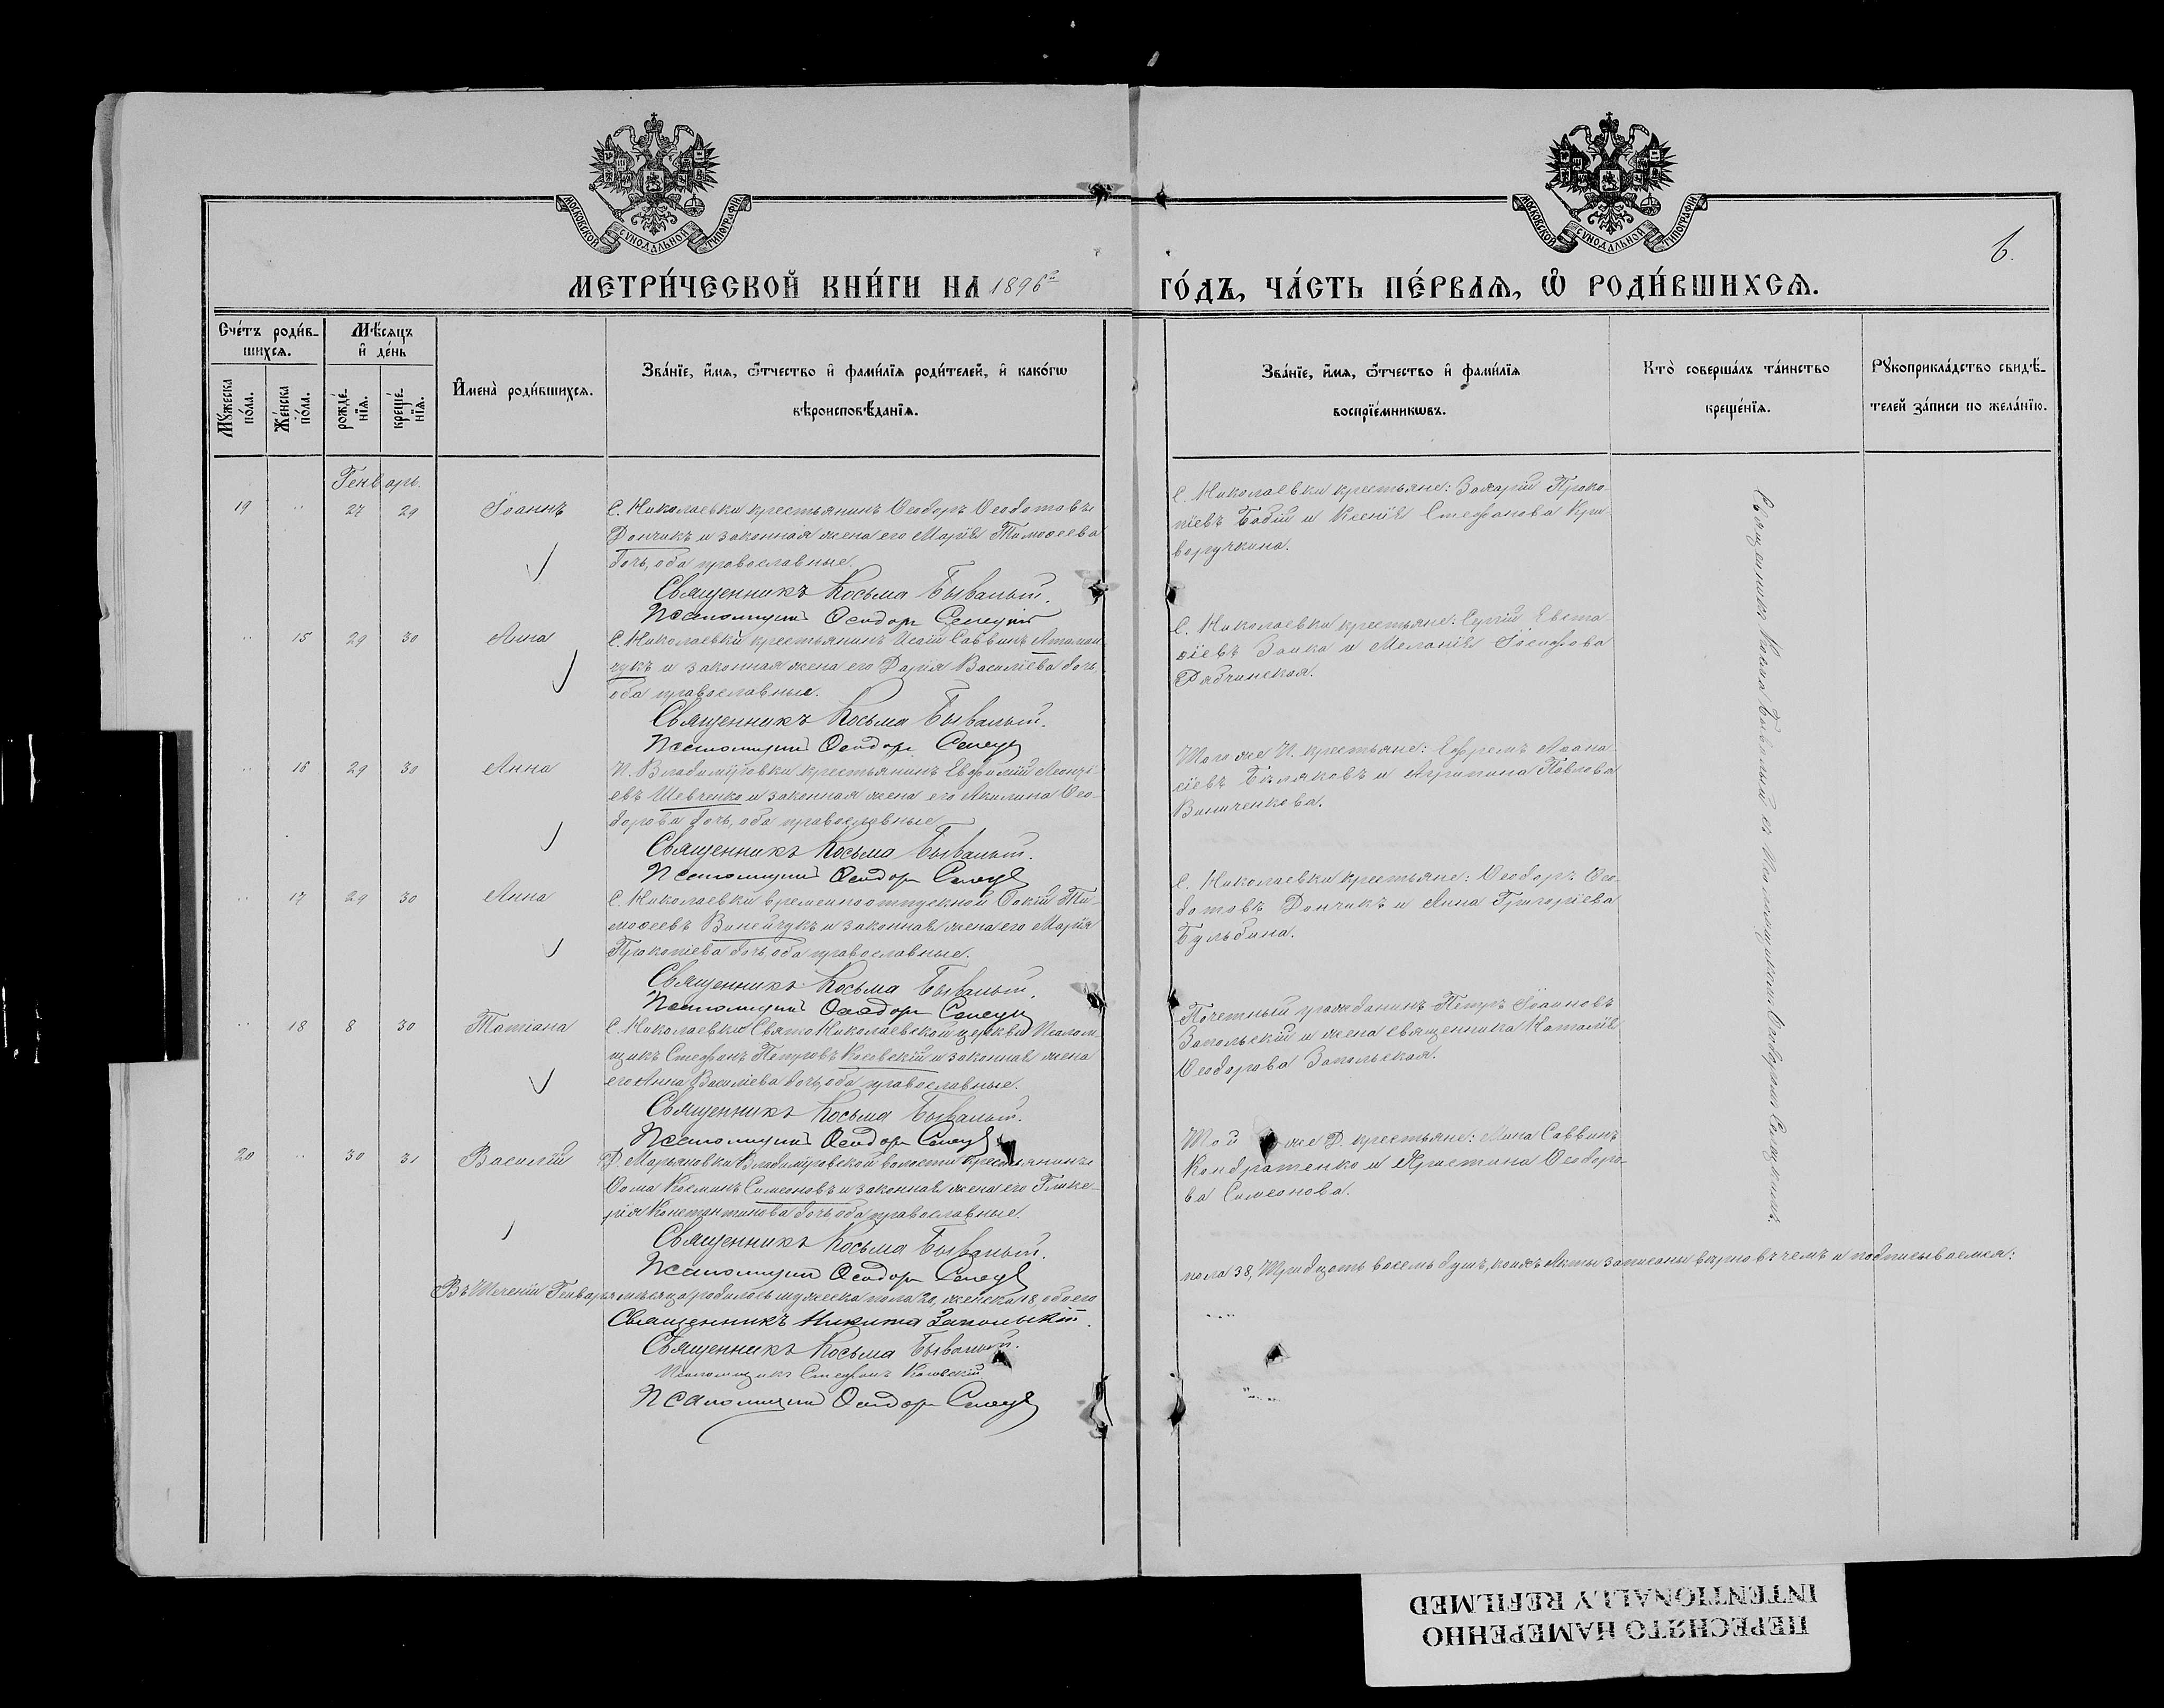 МОСКОВСКОЙ СУНОДАЛЬНОЙ ТИПОГРАФІИ
МОСКОВСКОЙ СУНОДАЛЬНОЙ ТИПОГРАФІИ
6.
МЕТРИ́ЧЕСКОЙ КНИ́ГИ НА 1896 г
ГО́ДЪ, ЧА́СТЬ ПЕ́РВАѦ, Ѡ҆ РОДИ́ВШИХСѦ.
Сче́тъ роди́в-
шихсѧ.
Мꙋжеска по́ла.
Же́нска по́ла.
Мѣ́сѧцъ
и҆ де́нь
рожде́-нїѧ.
креще́-нїѧ.
И҆мена̀ роди́вшихсѧ.
Зва́нїе, и҆́мѧ, ѻ҆́тчество и҆ фами́лїѧ роди́телей, и҆ како́гѡ
вѣроисповѣ́данїѧ.
Зва́нїе, и҆́мѧ, ѻ҆́тчество и҆ фами́лїѧ
воспрїе́мникѡвъ.
Кто̀ соверша́лъ та́инство
креще́нїѧ.
Рꙋкоприкла́дство свидѣ́-
телей за́писи по жела́нїю.
Генварь.
19 " 27 29 Іоаннъ
С. Николаевки крестьянинъ Ѳеодоръ Ѳеодотовъ
Дончикъ и законная жена его Марія Тимоѳеева
дочь, оба православные.
Священникъ Косьма Бывалый.
Псаломщикъ Ѳеодоръ
С. Николаевки крестьяне: Захарій Проко-
піевъ Бабій и Ксенія Стефанова Кри
воручкина.
" 15 29 30 Анна
С. Николаевки крестьянинъ Исаій Саввинъ Атаман
чукъ и законная жена его Дарія Василіева дочь,
оба православные.
Священникъ Косьма Бывалый.
Псаломщикъ Ѳеодоръ
С. Николаевки крестьяне: Сергій Евста-
ѳіевъ Заика и Меланія Іосифова
Рябчинская.
" 16 29 30 Анна
И. Владиміровки крестьянинъ Евфимій Леонті-
евъ Шевченко и законная жена его Акилина Ѳео-
дорова дочь, оба православные
Священникъ Косьма Бывалый.
Псаломщикъ Ѳеодоръ
Того же И. крестьяне: Ефремъ Аѳана-
сіевъ Бѣляковъ и Агрипина Павлова
Виниченкова.
" 17 29 30 Анна
С. Николаевки временноотпускной Ѳокій Ти-
моѳеевъ Винейчукъ и законная жена его Марія
Прокопіева дочь, оба православные.
Священникъ Косьма Бывалый.
Псаломщикъ Ѳеодоръ
С. Николаевки крестьяне: Ѳеодоръ Ѳео-
дотовъ Дончикъ и Анна Григоріева
Бульбина.
" 18 8 30 Татіана
С. Николаевки Свято Николаевской церкви Псалом-
щикъ Стефанъ Петровъ Косовскій и законная жена
его Анна Василіева дочь, оба православные.
Священникъ Косьма Бывалый.
Псаломщикъ Ѳеодоръ
Почетный гражданинъ Петръ Іоанновъ
Запольскій и жена священника Наталія
Ѳеодорова Запольская.
20 " 30 31 Василій
Д. Марьяновки Владиміровской волости крестьянинъ
Ѳома Косминъ Симеоновъ и законная жена его Глике-
рія Константинова дочь, оба православные.
Священникъ Косьма Бывалый.
Псаломщикъ Ѳеодоръ
Той же Д. крестьяне: Мина Саввинъ
Кондратенко и Христина Ѳеодоро-
ва Симеонова.
Священникъ Косьма Бывалый съ Псаломщикомъ Ѳеодоромъ
Въ теченіи Генваря мѣсяца родилось мужеска пола 20, женска 18, обоего
пола 38, тридцать восемь душъ, коихъ Акты записаны вѣрно въ чемъ и подписываемся:
Священникъ Никита Запольскій.
Священникъ Косьма Бывалый.
Псаломщикъ Стефанъ Косовскій
Псаломщикъ Ѳеодоръ
ПЕРЕСНЯТО НАМЕРЕННО
INTENTIONALLY REFILMED